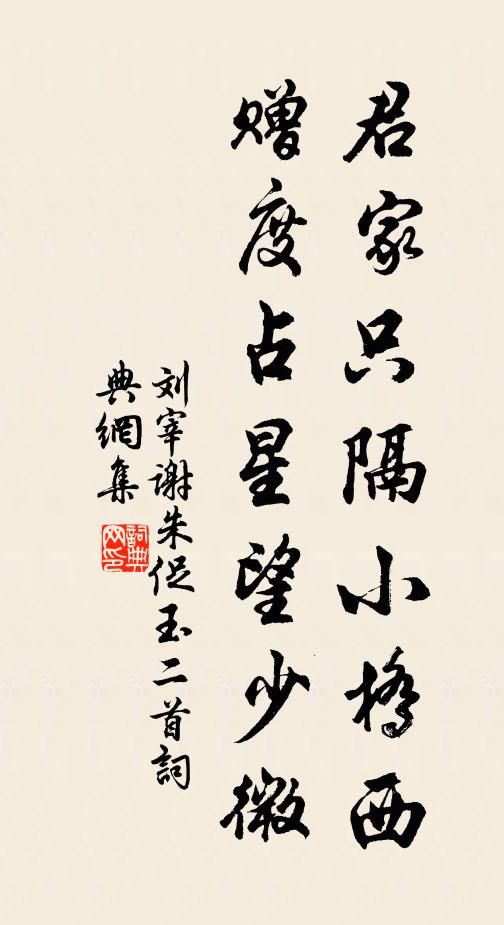 君家只隔小橋西
赠度占星望少微
刘宰谢朱促玉二首詞
典網集
詞典网印